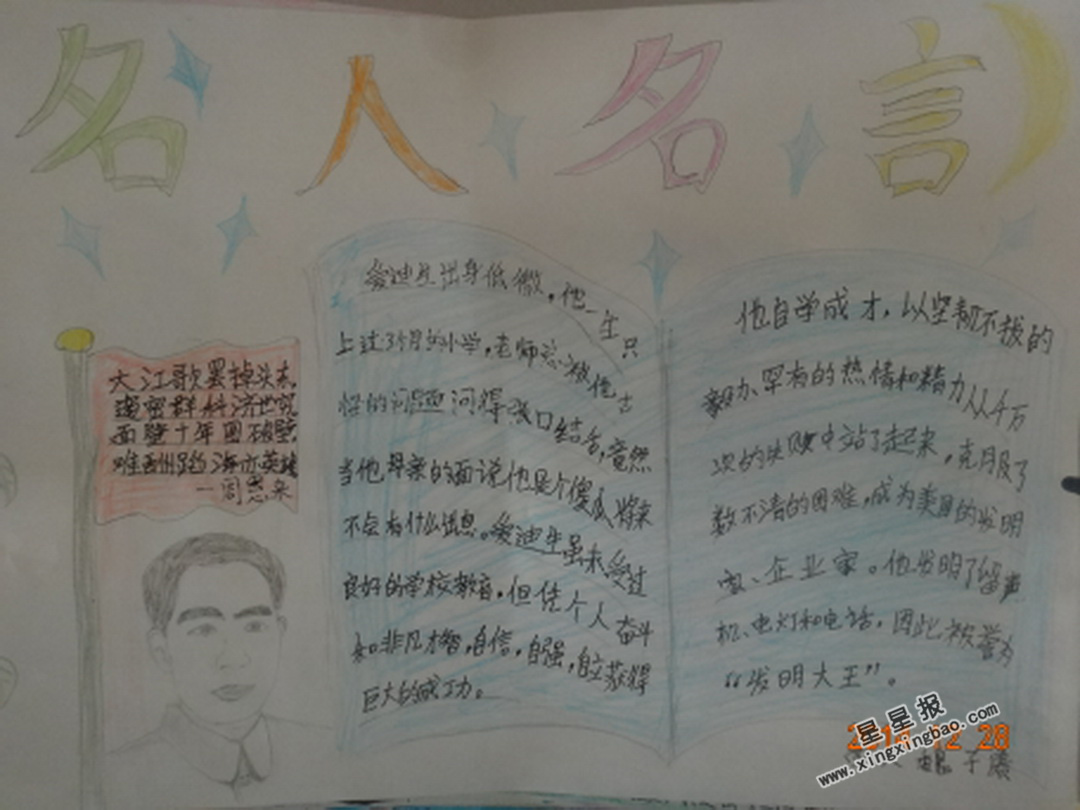 名人名言
大江歌罢掉头东
邃密群科济世穷
面壁十年图破壁
难酬蹈海亦英雄
—周恩来
爱迪生出身低微，他一生只
上过3个月的小学，老师总被他古
怪的问题问得张口结舌，竟然
当他母亲的面说他是个傻瓜将来
不会有什么出息。爱迪生虽未受过
良好的学校教育，但凭个人奋斗
和非凡才智，自信，自强，自立获得
巨大的成功。
他自学成才，以坚韧不拔的
毅力、罕有的热情和精力从千万
次的失败中站了起来，克服了
数不清的困难，成为美国的发明
家、企业家。他发明了留声
机、电灯和电话，因此被誉为
“发明大王”。
12 28
星星报
www.xingxingbao.com